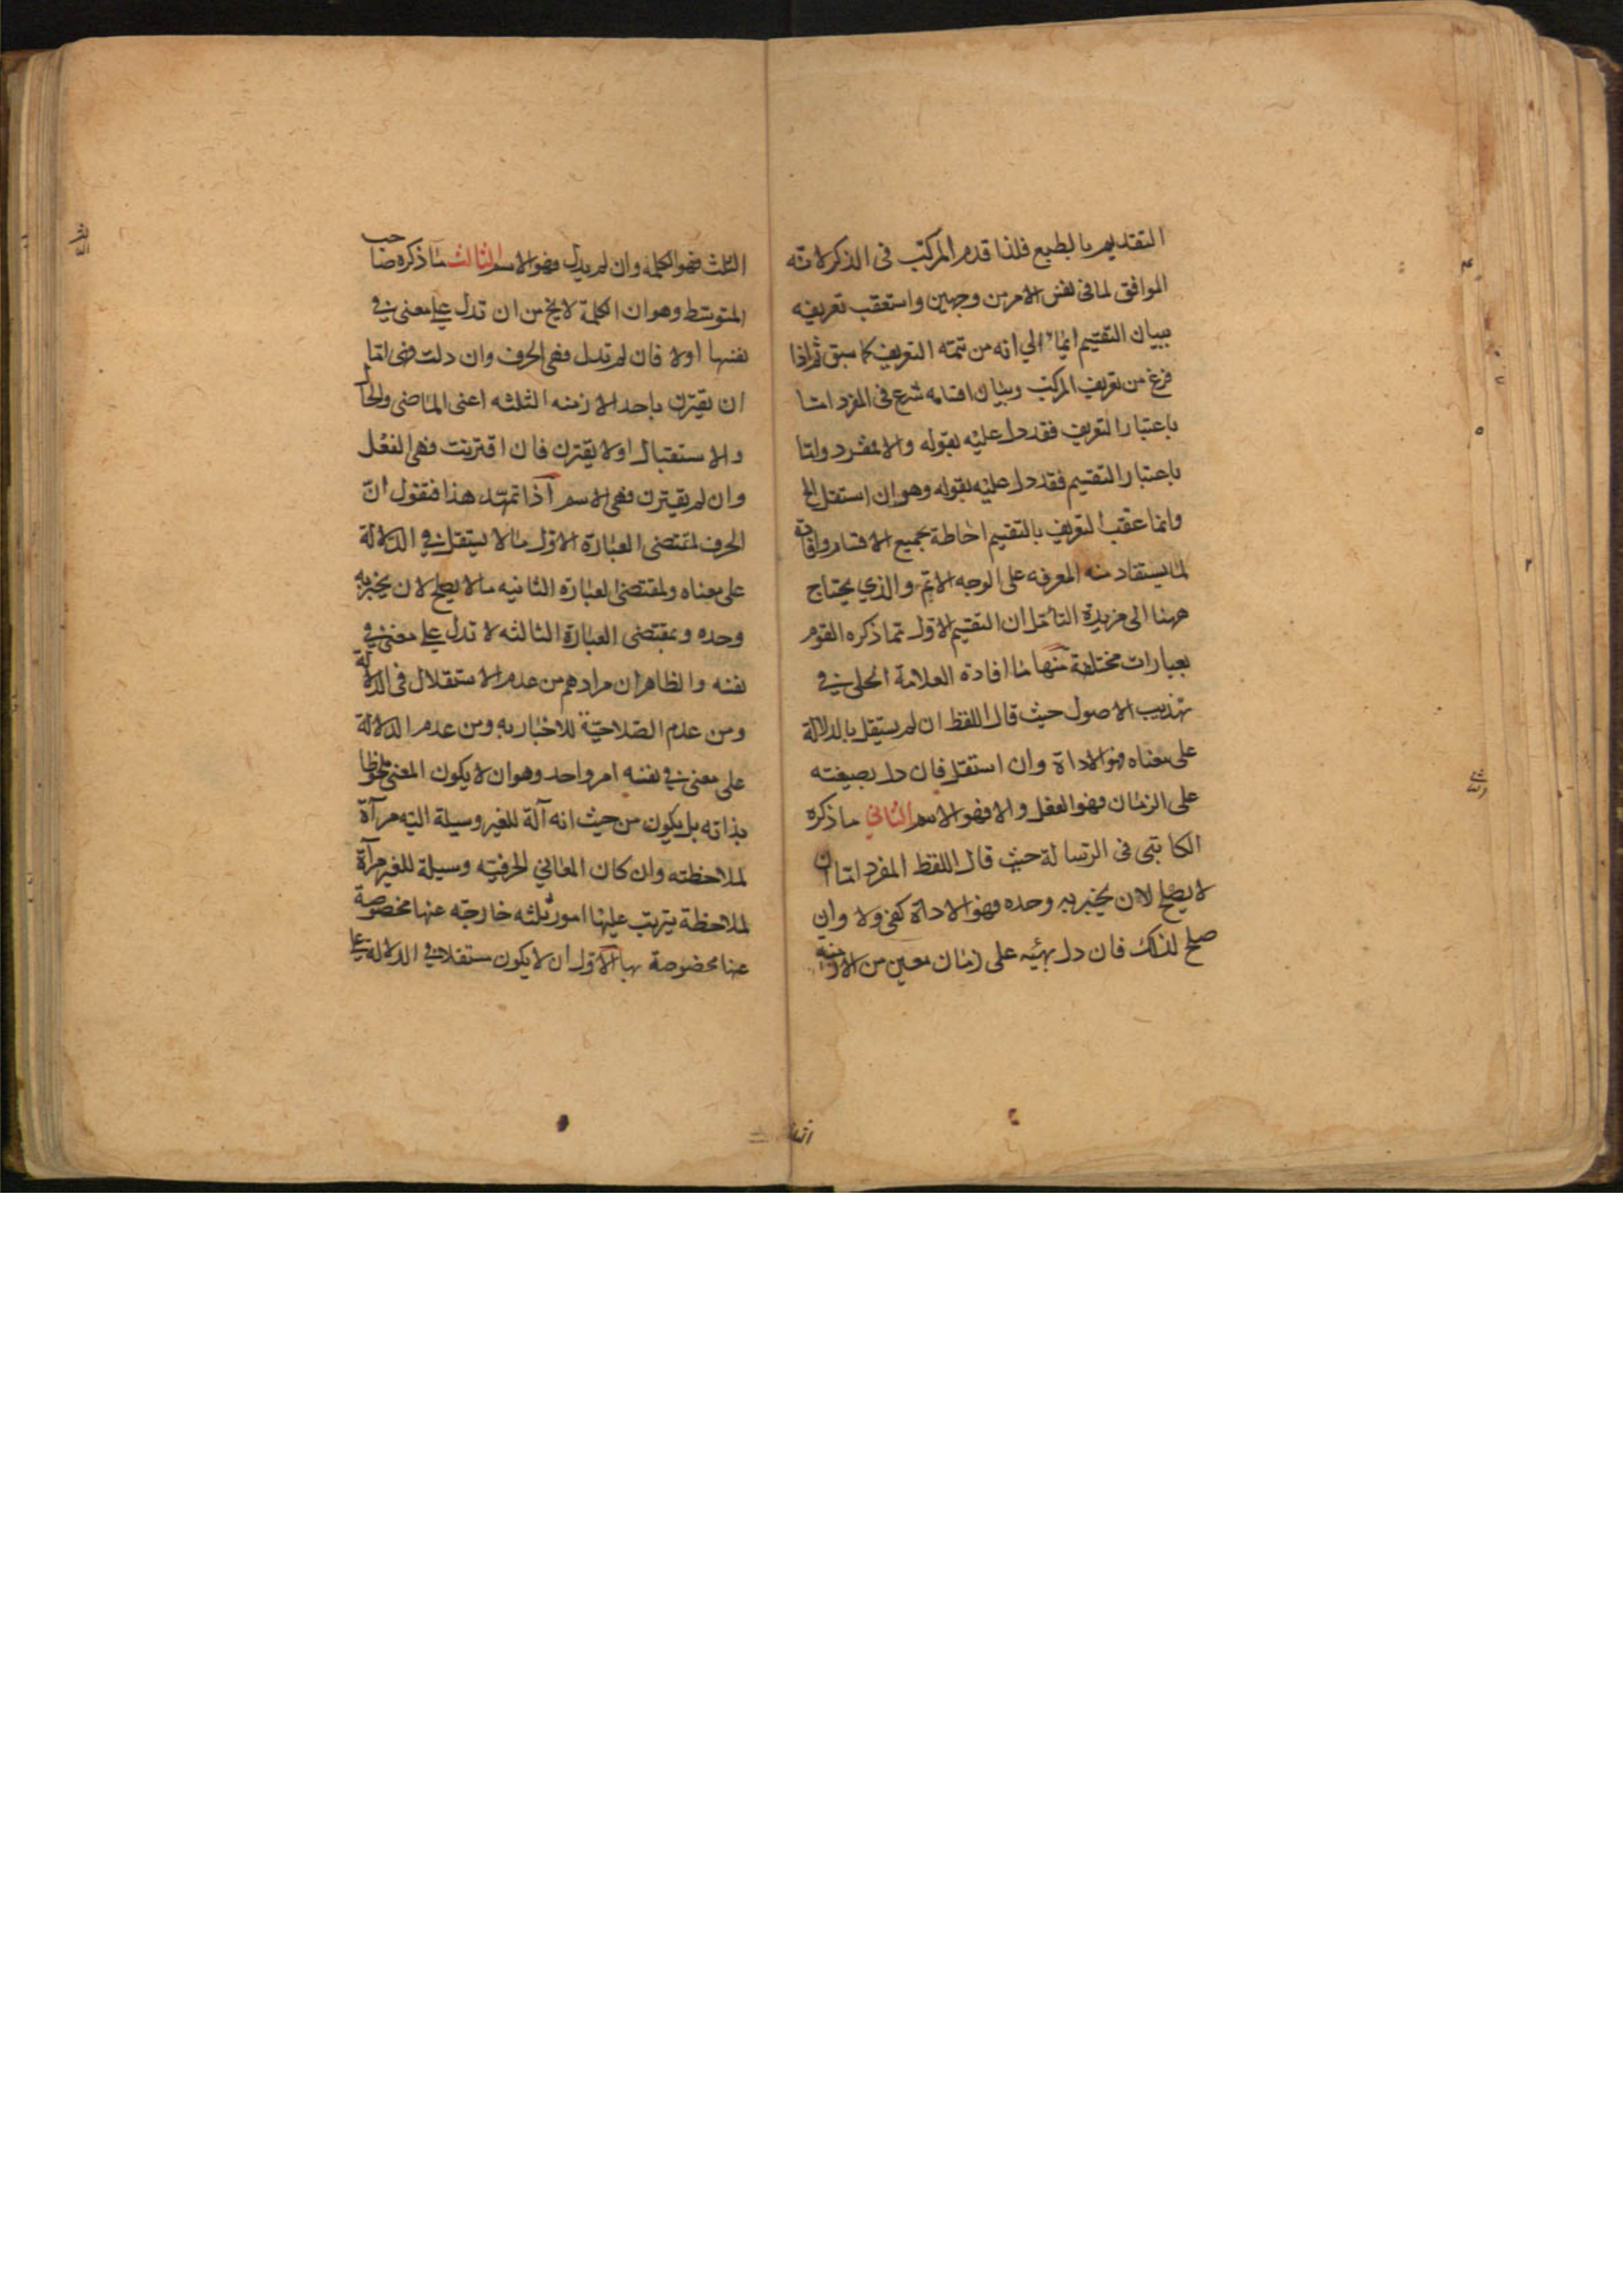 التقديم بالطبع فلذا قدم المركب فى الذكر لانه
الموافق لما فى نفس الامر من وجهين واستعقب تعريفه
ببيان التقسيم ايماء الي انه من تتمة التعريف كما سبق ثم اذا
فرغ من تعريف المركب وبيان اقسامه شرع فى المفرد اما
باعتبار التعريف فقد دل عليه بقوله والا مفرد واما
باعتبار التقسيم فقد دل عليه بقوله وهو ان استقل الخ
وانما عقب التعريف بالتقسيم احاطة بجميع الاقسام
لما يستفاد منه المعرفه على الوجه الاتم والذي يحتاج
ههنا الى مزيدة التأمل ان التقسيم الاول مما ذكره القوم
بعبارات مختلفة منها ما افاده العلامة الحلى في
تهذيب الاصول حيث قال اللفظ ان لم يستقل بالدلالة
على معناه فهو الاداة وان استقل فان دل بصيغته
على الزمان فهو الفعل والا فهو الاسم الثاني ما ذكره
الكاتبى فى الرسالة حيث قال اللفظ المفرد اما ان
لا يصلح لان يخبر به وحده فهو الاداة كفى ولا وان
صلح لذلك فان دل بهيئه على زمان معين من الازمنه
الثلث فهو الكلمه وان لم يدل فهو الاسم الثالث ما ذكره صاحب
المتوسط وهو ان الكلمة لا يخ من ان تدل على معنى في
نفسها اولا فان لم تدل فهى الحرف وان دلت فهى اما
ان يقترن باحد الازمنه الثلثه اعنى الماضى والحال
والاستقبال اولا يقترن فان اقترنت فهى الفعل
وان لم يقترن فهى الاسم اذا تمهد هذا فنقول ان
الحرف لمقتضى العبارة الاول ما لا يستقل في الدلالة
على معناه ولمقتضى العبارة الثانيه ما لا يصلح لان يخبر به
وحده وبمقتضى العبارة الثالثه لا تدل على معنى في
نفسه والظاهر ان مرادهم من عدم الاستقلال فى الدلالة
ومن عدم الصلاحية للاخبار به ومن عدم الدلالة
على معنى في نفسه امر واحد وهو ان لا يكون المعنى ملحوظا
بذاته بل يكون من حيث انه آلة للغير وسيلة اليه مرآة
لملاحظته وان كان المعاني الحرفيه وسيلة للغير مرآة
لملاحظة يترتب عليها امور ثلثه خارجه عنها مخصوصة
عنها مخصوصة بها الاول ان لا يكون مستقلا في الدلالة على